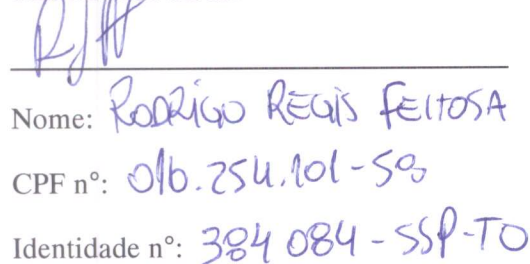 Nome: RODRIGO REGIS FEITOSA
CPF n°: 016.254.101-59
Identidade n°: 384 084 - SSP-TO